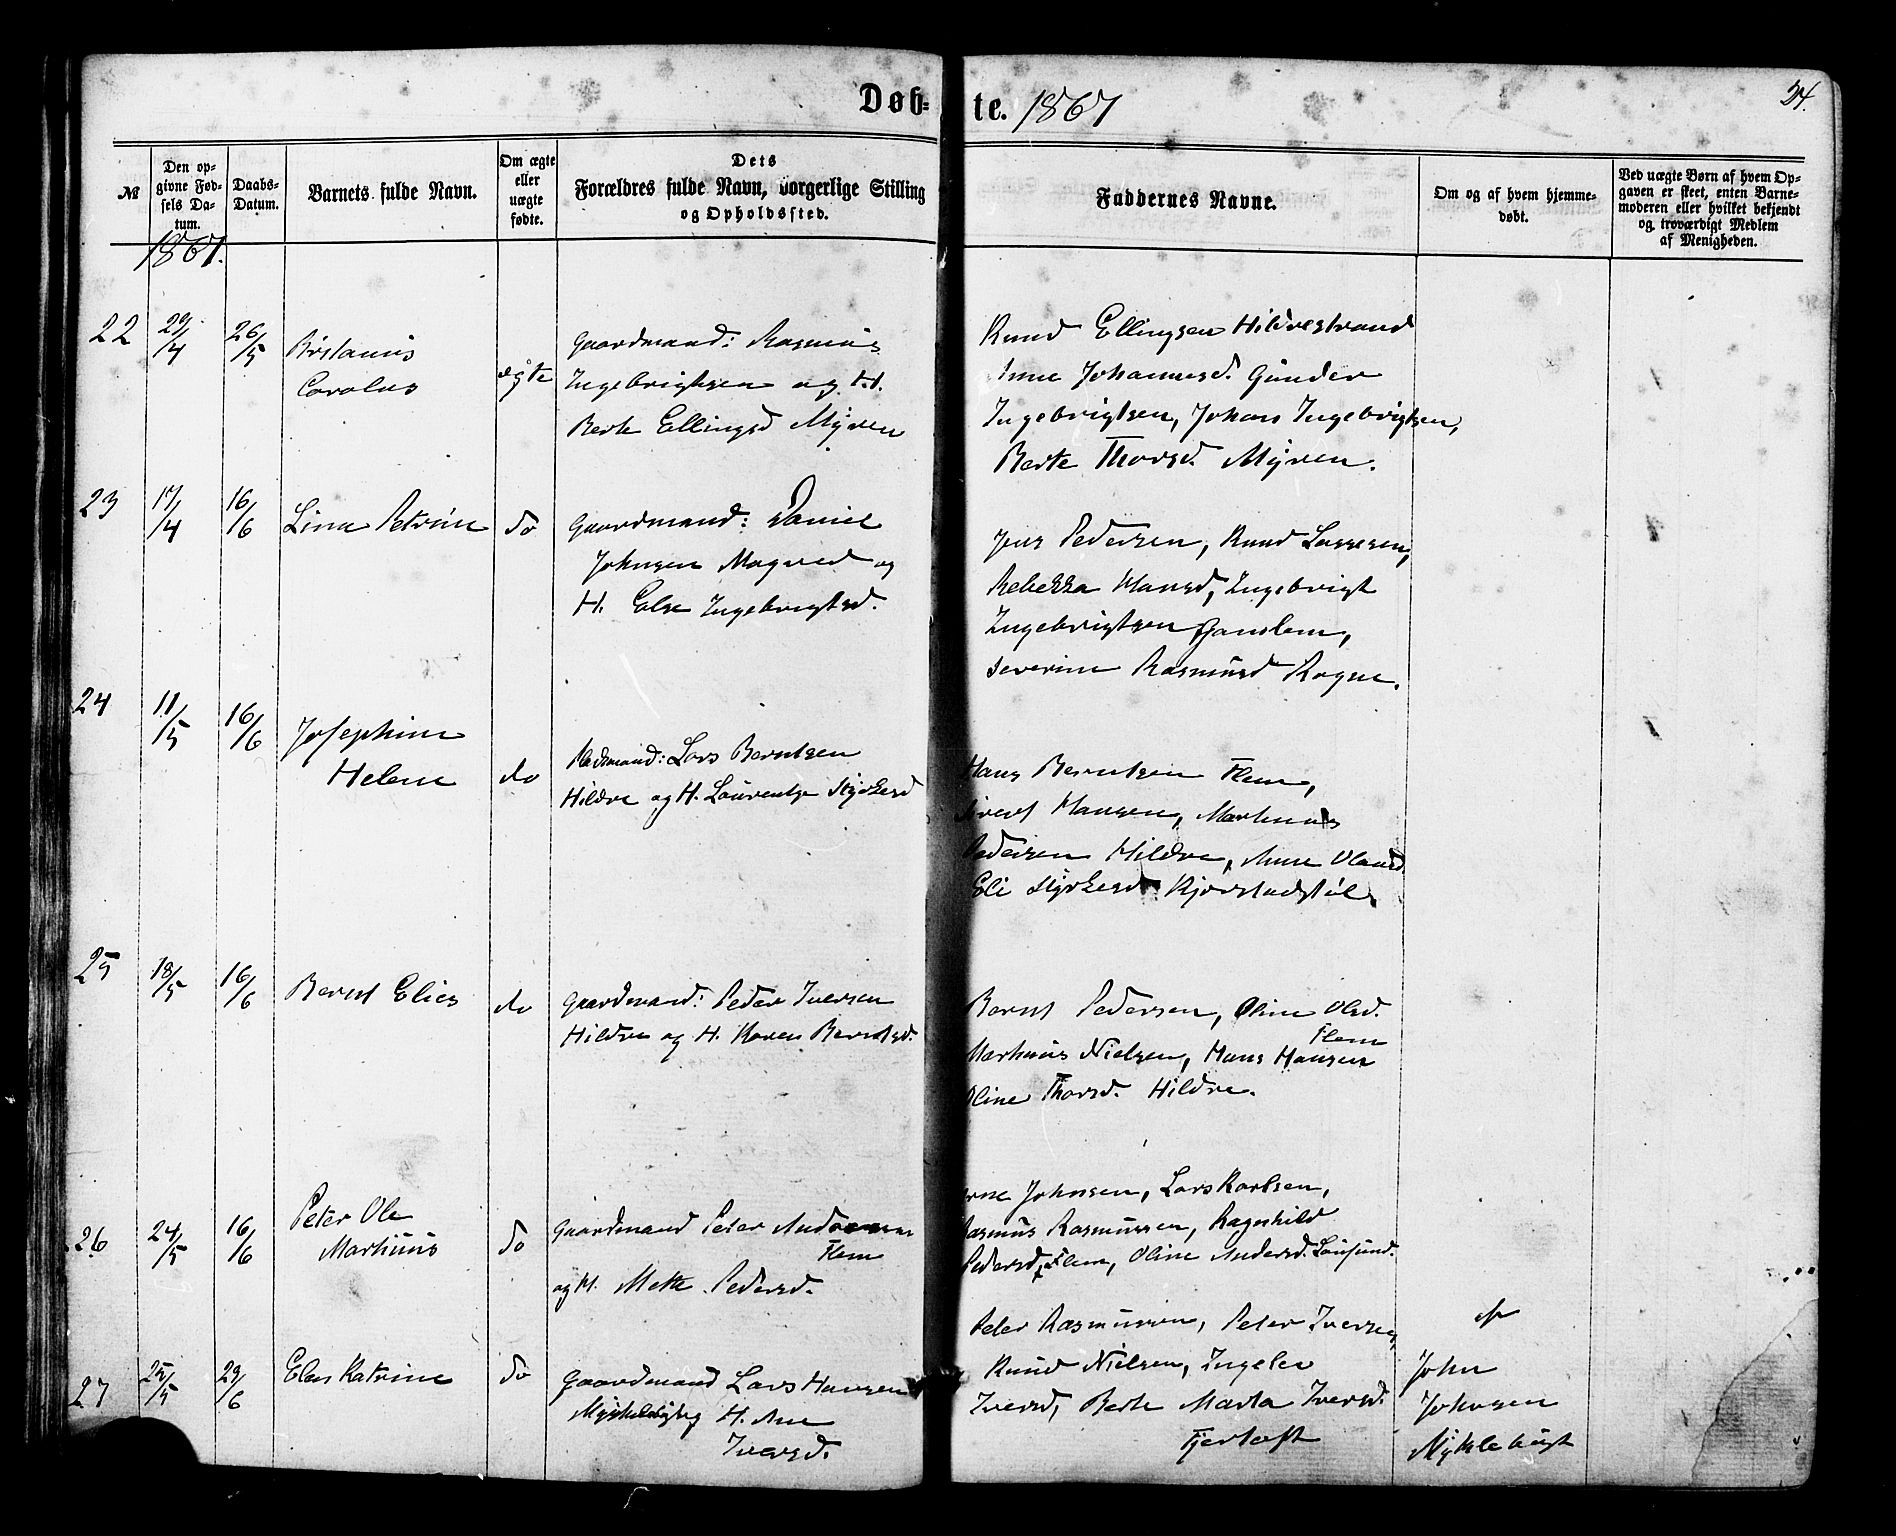 Døb-
te. 1867
24.
№
Den op-
givne Fød-
sels Da-
tum.
Daabs-
Datum.
Barnets fulde Navn.
Om ægte
eller
uægte
fødte.
Dets
Forældres fulde Navn, borgerlige Stilling
og Opholdssted.
Faddernes Navne.
Om og af hvem hjemme-
døbt.
Ved uægte Børn af hvem Op-
gaven er skeet, enten Barne-
moderen eller hvilket bekjendt
og troværdigt Medlem
af Menigheden.
1867.
22
29/4
26/5
Carolus
ægte
Gaardmand: Rasmus
Ingebrigtsen og H.
Berte Ellingsd Myren
Knud Ellingsen Hildrestrand
Anne Johannesd. Gunder
Ingebrigtsen, Johan Ingebrigtsen,
Berte Thorsd. Myren.
23
17/4
16/6
Lina Petrine
do
Gaardmand: Daniel
Johnsen Mogned og
H. Else Ingebrigtsd.
Jens Pedersen, Knud Lassesen,
Rebekka Hansd, Ingebrigt
Ingebrigtsen Gamlem,
Severine Rasmusd Rogne.
24
11/5
16/6
Josephine
Helene
do
Pladsmand: Lars Berntsen
Hildre og H. Laurentse Styrkersd
Hans Berntsen Flem,
Sivert Hansen, Martinus
Pedersen Hildre, Anne Olausd
Eli Styrkersd Kjørstadstøl.
25
18/5
16/6
Bernt Elias
do
Gaardmand: Peder Iversen
Hildre og H. Karen Berntsd.
Bernt Pedersen, Oline Olsd.
Flem
Martinus Nielsen, Hans Hansen
Oline Thorsd. Hildre.
26
24/5
16/6
Peter Ole
Martinus
do
Gaardmand Peter Andersen
Flem
og H. Mette Pedersd.
Arne Johnsen, Lars Karlsen,
Rasmus Rasmussen, Ragnhild
Pedersd, Flem, Oline Andersd. Lausund.
27
25/5
23/6
Elen Katrine
do
Gaardmand Lars Hansen
Myklebug og H. Ane
Iversd.
Peter Rasmussen, Peter Iversen,
Knud Nielsen, Ingelev
Iversd, Berte Marta Iversd.
Fjertoft
af
John
Johnsen
Myklebugt